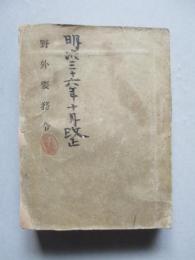 明治三十六年十月改正
野外要務令